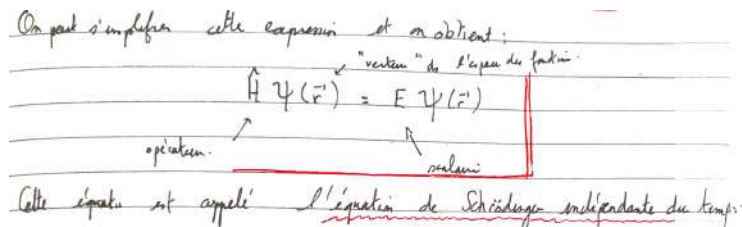 On peut s'implifier cette expression et on obtient :
"vecteur" de l'espace des fonctions.
Ĥ Ψ(r⃗) = E Ψ(r⃗)
opérateur.
scalaire
Cette équatu est appelé l'équation de Schrödinger indépendante du temps.